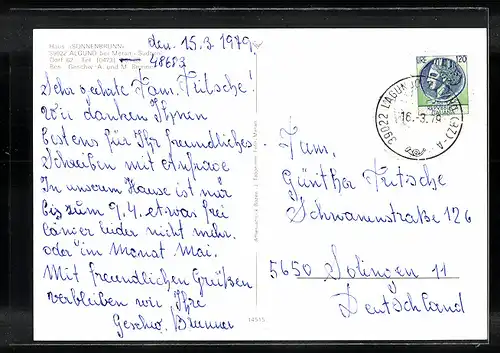 Haus »SONNENBRUNN«
39022 ALGUND bei Meran - Südtirol
Dorf 62 Tel. (0473)
48683
Bes. Geschw. A. und M. Brunner
den. 15.3.1979.
Sehr geehrte Fam. Fritsche!
Wir danken Ihnen
bestens für Ihr freundliches
Schreiben mit Anfrage
In unserem Hause ist nur
bis zum 9.4. etwas frei
länger leider nicht mehr.
oder im Monat Mai.
Mit freundlichen Grüßen
verbleiben wir Ihre
Geschw. Brunner
14515
LIRE 120
39022 LAGUNDO (BZ) - A
16.-3.79
Fam.
Günther Fritsche
Schwanenstraße 126
5650 Solingen 11
Deutschland